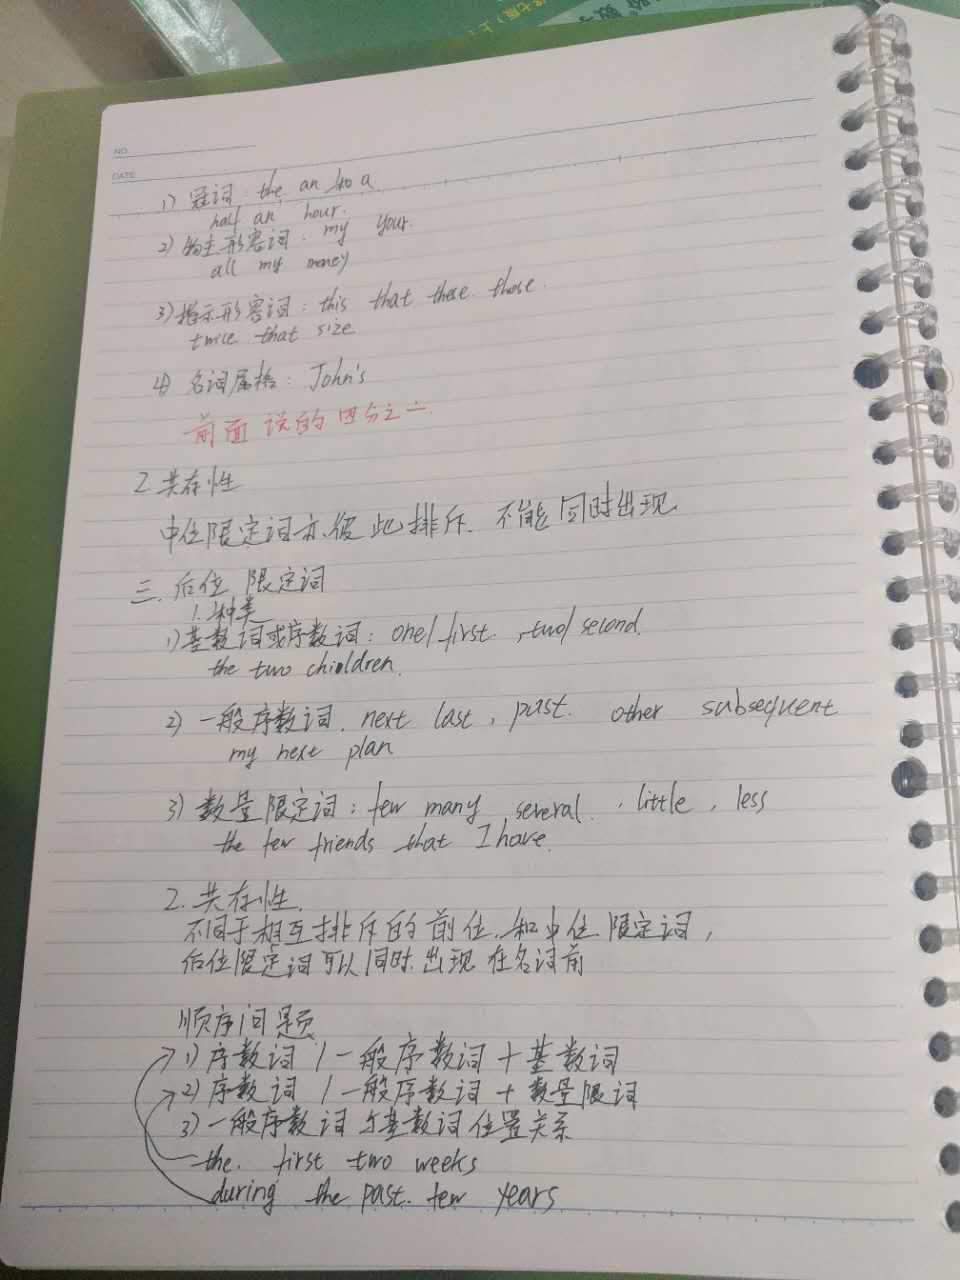 七版)(上
数
NO.
DATE
1) 冠词: the an a
half an hour.
2) 物主形容词: my your.
all my money
3) 指示形容词: this that these those.
twice that size
4) 名词属格: John's
前面说的四分之一
2 共存性
中位限定词亦彼此排斥. 不能同时出现
三. 后位限定词
1. 种类
1) 基数词或序数词: one/first, two/second.
the two chioldren.
2) 一般序数词. next last, past. other subsequent
my next plan
3) 数量限定词: few many several, little, less
the few friends that I have.
2. 共存性.
不同于相互排斥的前位.和中位限定词,
后位限定词可以同时出现在名词前
顺序问题
1) 序数词/一般序数词+基数词
2) 序数词/一般序数词+数量限词
3) 一般序数词与基数词位置关系
the. first two weeks
during the past. few years